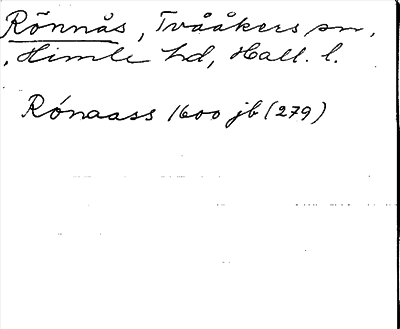 Rönnås, Tvååkers sn,
, Himle hd, Hall. l.
Rónaass 1600 jb (279)